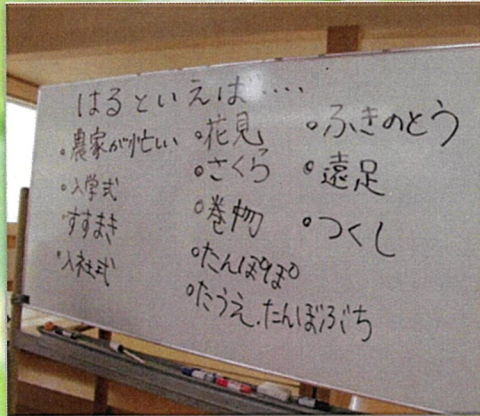 はるといえば‥‥
◦農家が忙しい
◦入学式
◦すすまき
◦入社式
◦花見
◦さくら
◦巻物
◦たんぽぽ
◦たうえ.たんぼぶち
◦ふきのとう
◦遠足
◦つくし